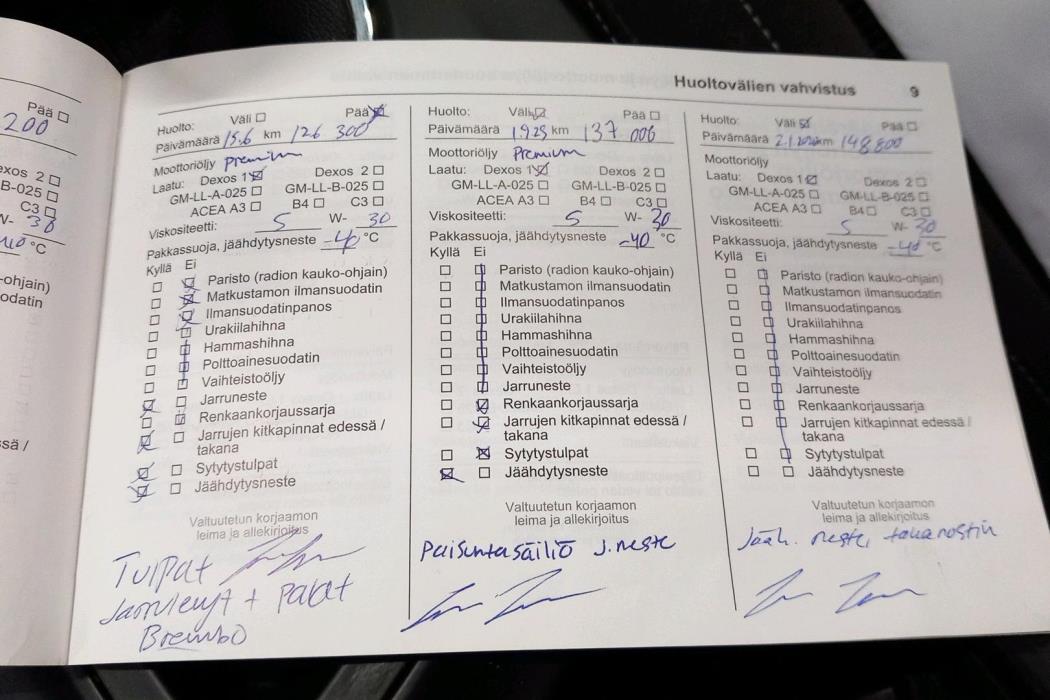 Pää
200
exos 2
-B-025
C3
W- 30
-40 °C
-ohjain)
odatin
ssä /
Huoltovälien vahvistus 9
Huolto: Väli Pää
Päivämäärä 15.6 km 126 300
Moottoriöljy premium
Laatu: Dexos 1 Dexos 2
GM-LL-A-025 GM-LL-B-025
ACEA A3 B4 C3
Viskositeetti: 5 W- 30
Pakkassuoja, jäähdytysneste -40 °C
Kyllä Ei
Paristo (radion kauko-ohjain)
Matkustamon ilmansuodatin
Ilmansuodatinpanos
Urakiilahihna
Hammashihna
Polttoainesuodatin
Vaihteistoöljy
Jarruneste
Renkaankorjaussarja
Jarrujen kitkapinnat edessä /
takana
Sytytystulpat
Jäähdytysneste
Valtuutetun korjaamon
leima ja allekirjoitus
Tulpat
Jarrulevyt + palat
Brembo
Huolto: Väli Pää
Päivämäärä 1925 km 137 006
Moottoriöljy Premium
Laatu: Dexos 1 Dexos 2
GM-LL-A-025 GM-LL-B-025
ACEA A3 B4 C3
Viskositeetti: 5 W- 30
Pakkassuoja, jäähdytysneste -40 °C
Kyllä Ei
Paristo (radion kauko-ohjain)
Matkustamon ilmansuodatin
Ilmansuodatinpanos
Urakiilahihna
Hammashihna
Polttoainesuodatin
Vaihteistoöljy
Jarruneste
Renkaankorjaussarja
Jarrujen kitkapinnat edessä /
takana
Sytytystulpat
Jäähdytysneste
Valtuutetun korjaamon
leima ja allekirjoitus
Paisuntasäiliö J.neste
Huolto: Väli Pää
Päivämäärä km 148 800
Moottoriöljy
Laatu: Dexos 1 Dexos 2
GM-LL-A-025 GM-LL-B-025
ACEA A3 B4 C3
Viskositeetti: 5 W- 30
Pakkassuoja, jäähdytysneste -40 °C
Kyllä Ei
Paristo (radion kauko-ohjain)
Matkustamon ilmansuodatin
Ilmansuodatinpanos
Urakiilahihna
Hammashihna
Polttoainesuodatin
Vaihteistoöljy
Jarruneste
Renkaankorjaussarja
Jarrujen kitkapinnat edessä /
takana
Sytytystulpat
Jäähdytysneste
Valtuutetun korjaamon
leima ja allekirjoitus
Jääh. neste, takanostin